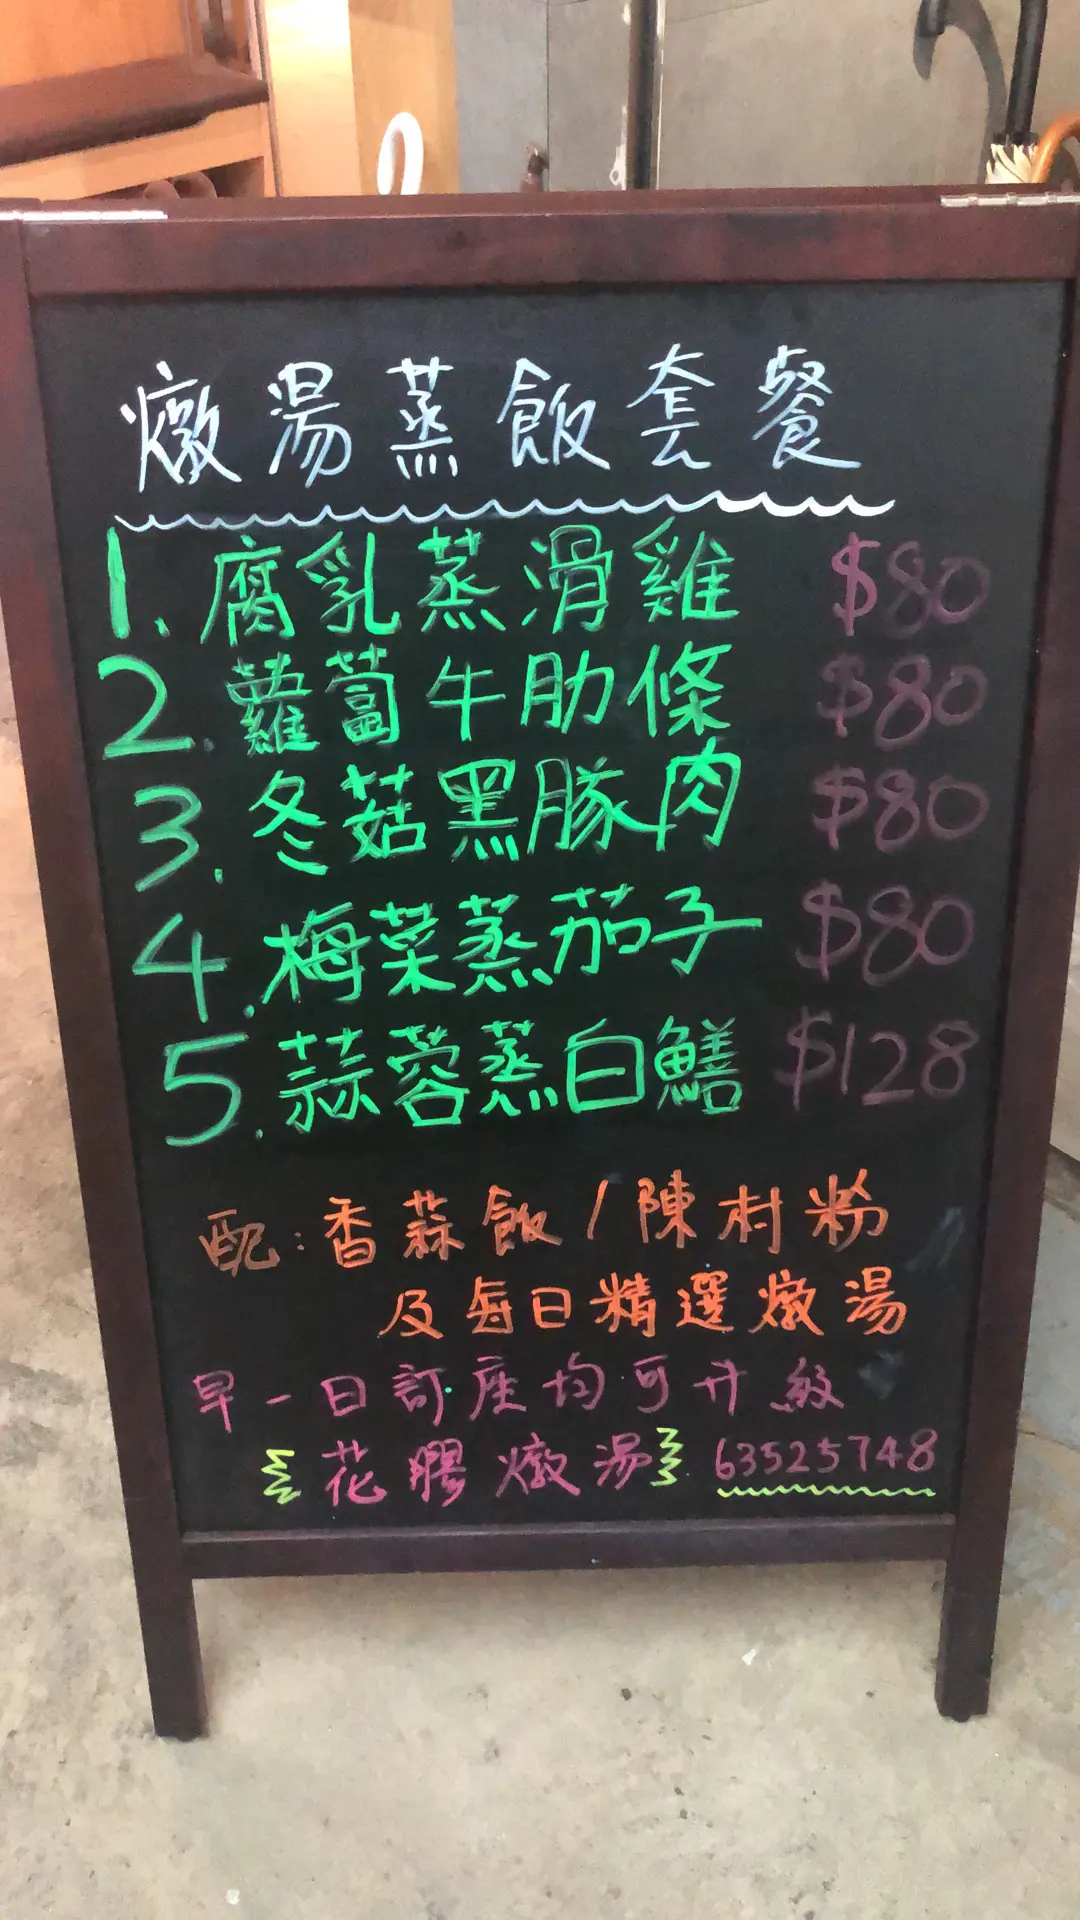 燉湯蒸飯套餐
1. 腐乳蒸滑雞 $80
2. 蘿蔔牛肋條 $80
3. 冬菇黑豚肉 $80
4. 梅菜蒸茄子 $80
5. 蒜蓉蒸白鱔 $128
配：香蒜飯/陳村粉
及每日精選燉湯
早一日訂座均可升級
花膠燉湯 63525748